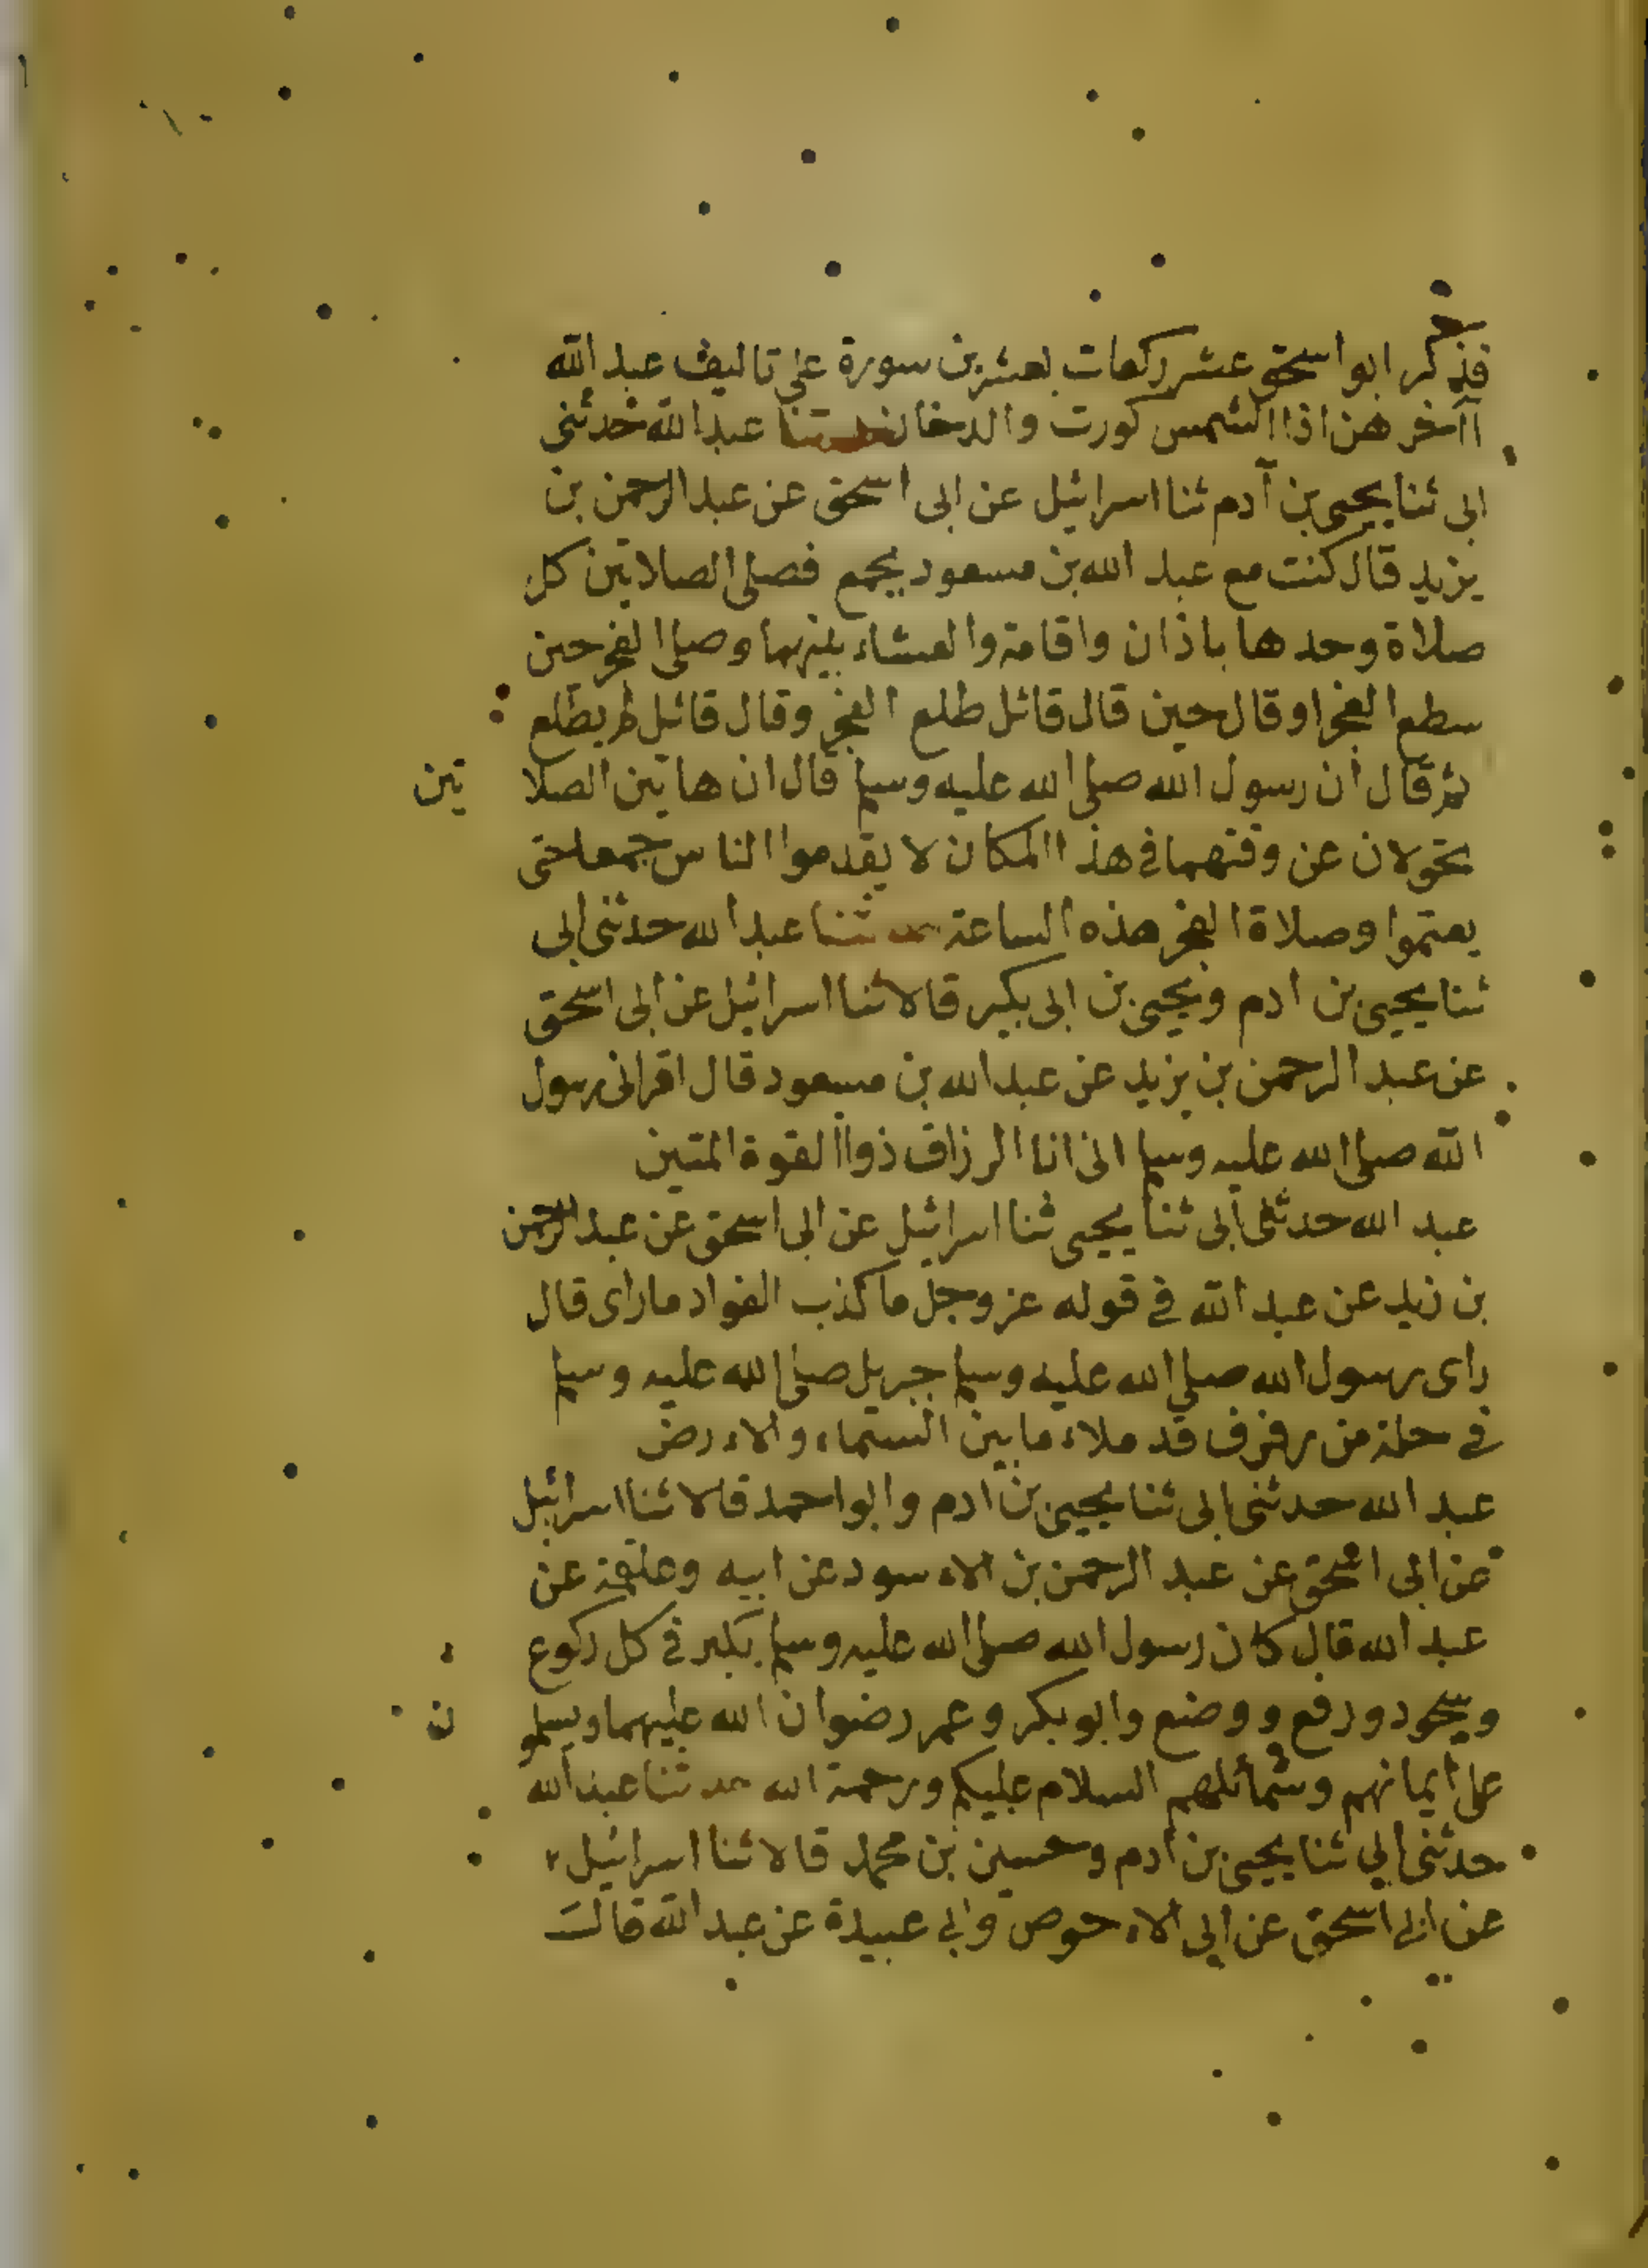 فذكر ابو اسحق عشر ركعات بعشرين سورة على تاليف عبد الله
آاخرهن اذا الشمس كورت والدخان حدثنا عبد الله حدثنى
ابى ثنا يحيى بن آدم ثنا اسرائيل عن ابى اسحق عن عبد الرحمن بن
يزيد قال كنت مع عبد الله بن مسعود بجمع فصلى الصلاتين كل
صلاة وحدها باذان واقامة والعشاء بينهما وصلى الفجر حين
سطع الفجر او قال حين قال قائل طلع الفجر وقال قائل لم يطلع
ثم قال ان رسول الله صلى الله عليه وسلم قال ان هاتين الصلا تين
تحولان عن وقتهما فى هذا المكان لا يقدموا الناس جمعا حتى
يعتموا وصلاة الفجر هذه الساعة حدثنا عبد الله حدثنى ابى
ثنا يحيى بن ادم ويحيى بن ابى بكير قالا ثنا اسرائيل عن ابى اسحق
عن عبد الرحمن بن يزيد عن عبد الله بن مسعود قال اقرانى رسول
الله صلى الله عليه وسلم انى انا الرزاق ذواالقوة المتين
عبد الله حدثنى ابى ثنا يحيى ثنا اسرائيل عن ابى اسحق عن عبد الرحمن
بن زيد عن عبد الله فى قوله عز وجل ما كذب الفواد ما راى قال
راى رسول الله صلى الله عليه وسلم جبريل صلى الله عليه وسلم
فى حلة من رفرف قد ملاء ما بين السماء والاءرض
عبد الله حدثنى ابى ثنا يحيى بن ادم وابو احمد قالا ثنا اسرائيل
عن ابى اسحق عن عبد الرحمن بن الاءسود عن ابيه وعلقمة عن
عبد الله قال كان رسول الله صلى الله عليه وسلم يكبر فى كل ركوع
وسجود ورفع ووضع وابو بكر وعمر رضوان الله عليهما ويسلمو ن
على ايمانهم وشمائلهم السلام عليكم ورحمة الله حدثنا عبد الله
حدثنى ابي ثنا يحيى بن ادم وحسين بن محمد قالا ثنا اسرائيل
عن ابى اسحق عن ابى الاءحوص وابى عبيدة عن عبد الله قالـ